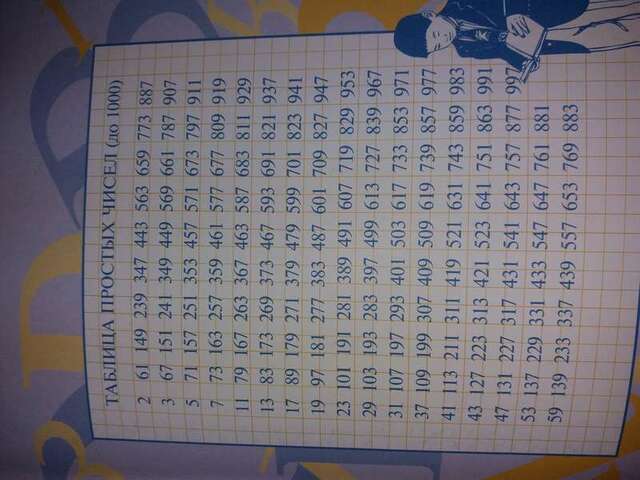 ТАБЛИЦА ПРОСТЫХ ЧИСЕЛ (до 1000)
2 61 149 239 347 443 563 659 773 887
3 67 151 241 349 449 569 661 787 907
5 71 157 251 353 457 571 673 797 911
7 73 163 257 359 461 577 677 809 919
11 79 167 263 367 463 587 683 811 929
13 83 173 269 373 467 593 691 821 937
17 89 179 271 379 479 599 701 823 941
19 97 181 277 383 487 601 709 827 947
23 101 191 281 389 491 607 719 829 953
29 103 193 283 397 499 613 727 839 967
31 107 197 293 401 503 617 733 853 971
37 109 199 307 409 509 619 739 857 977
41 113 211 311 419 521 631 743 859 983
43 127 223 313 421 523 641 751 863 991
47 131 227 317 431 541 643 757 877 997
53 137 229 331 433 547 647 761 881
59 139 233 337 439 557 653 769 883